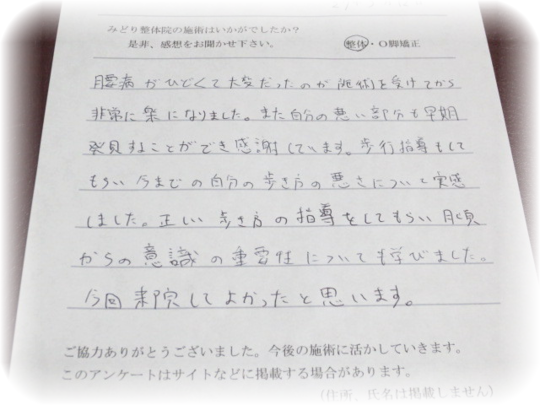 みどり整体院の施術はいかがでしたか?
是非、感想をお聞かせ下さい。
整体・O脚矯正
腰痛がひどくて大変だったのが施術を受けてから
非常に楽になりました。また自分の悪い部分も早期
発見することができ感謝しています。歩行指導もして
もらい今までの自分の歩き方の悪さについて実感
しました。正しい歩き方の指導をしてもらい日頃
からの意識の重要性についても学びました。
今回来院してよかったと思います。
ご協力ありがとうございました。今後の施術に活かしていきます。
このアンケートはサイトなどに掲載する場合があります。
(住所、氏名は掲載しません)